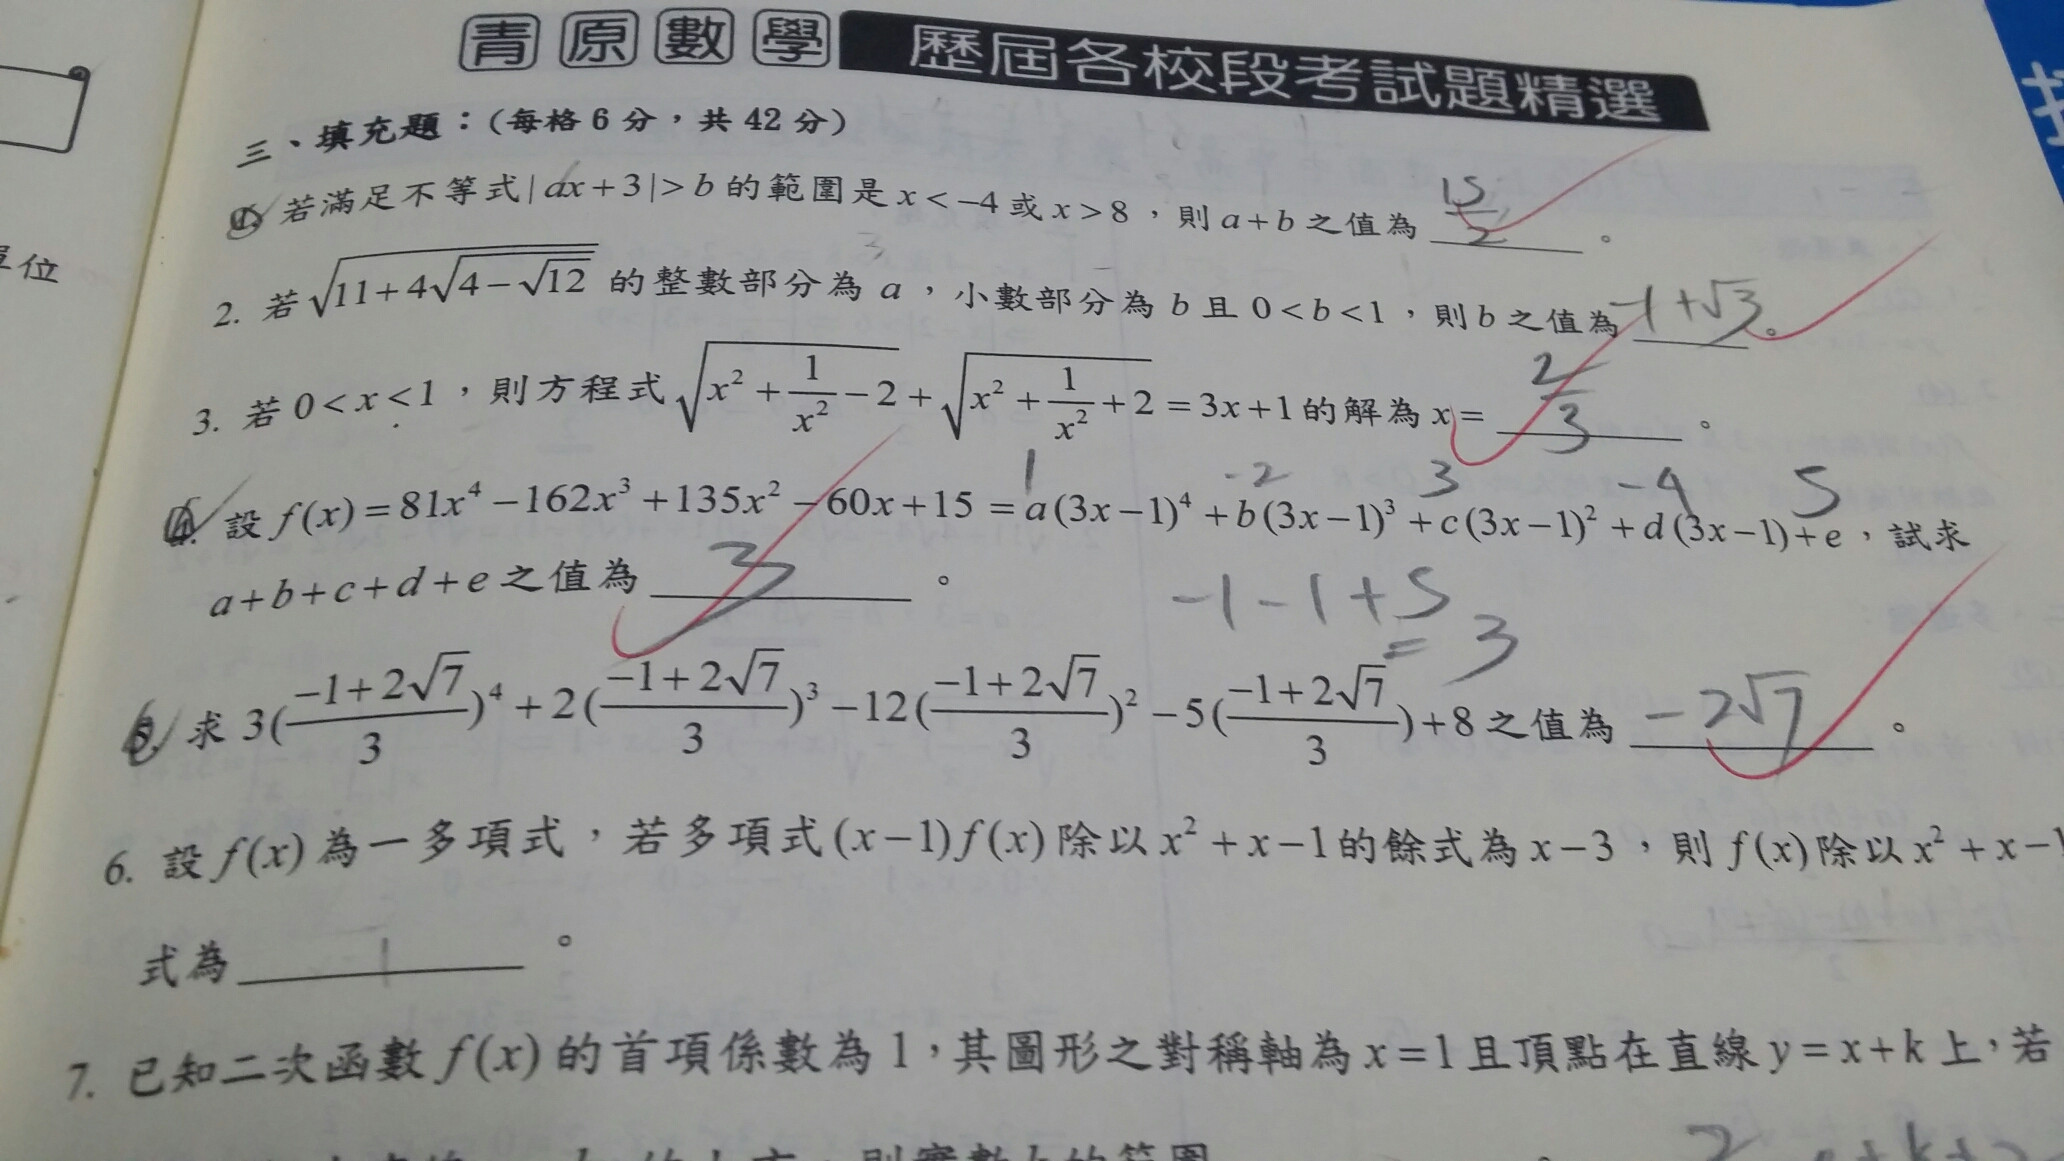 青原數學 歷屆各校段考試題精選
三、填充題：(每格 6 分，共 42 分)
1. 若滿足不等式|ax+3|>b 的範圍是 x<-4 或 x>8，則 a+b 之值為 15/2 。
單位
2. 若 √(11+4√(4-√12)) 的整數部分為 a，小數部分為 b 且 0<b<1，則 b 之值為 -1+√3 。
3. 若 0<x<1，則方程式 √(x²+1/x²-2)+√(x²+1/x²+2)=3x+1 的解為 x= 2/3 。
1 -2 3 -4 5
4. 設 f(x)=81x⁴-162x³+135x²-60x+15=a(3x-1)⁴+b(3x-1)³+c(3x-1)²+d(3x-1)+e，試求
a+b+c+d+e 之值為 3 。
-1-1+5
=3
5. 求 3((-1+2√7)/3)⁴+2((-1+2√7)/3)³-12((-1+2√7)/3)²-5((-1+2√7)/3)+8 之值為 -2√7 。
6. 設 f(x) 為一多項式，若多項式 (x-1)f(x) 除以 x²+x-1 的餘式為 x-3，則 f(x) 除以 x²+x-1
式為 。
7. 已知二次函數 f(x) 的首項係數為 1，其圖形之對稱軸為 x=1 且頂點在直線 y=x+k 上，若
則實數 k 的範圍